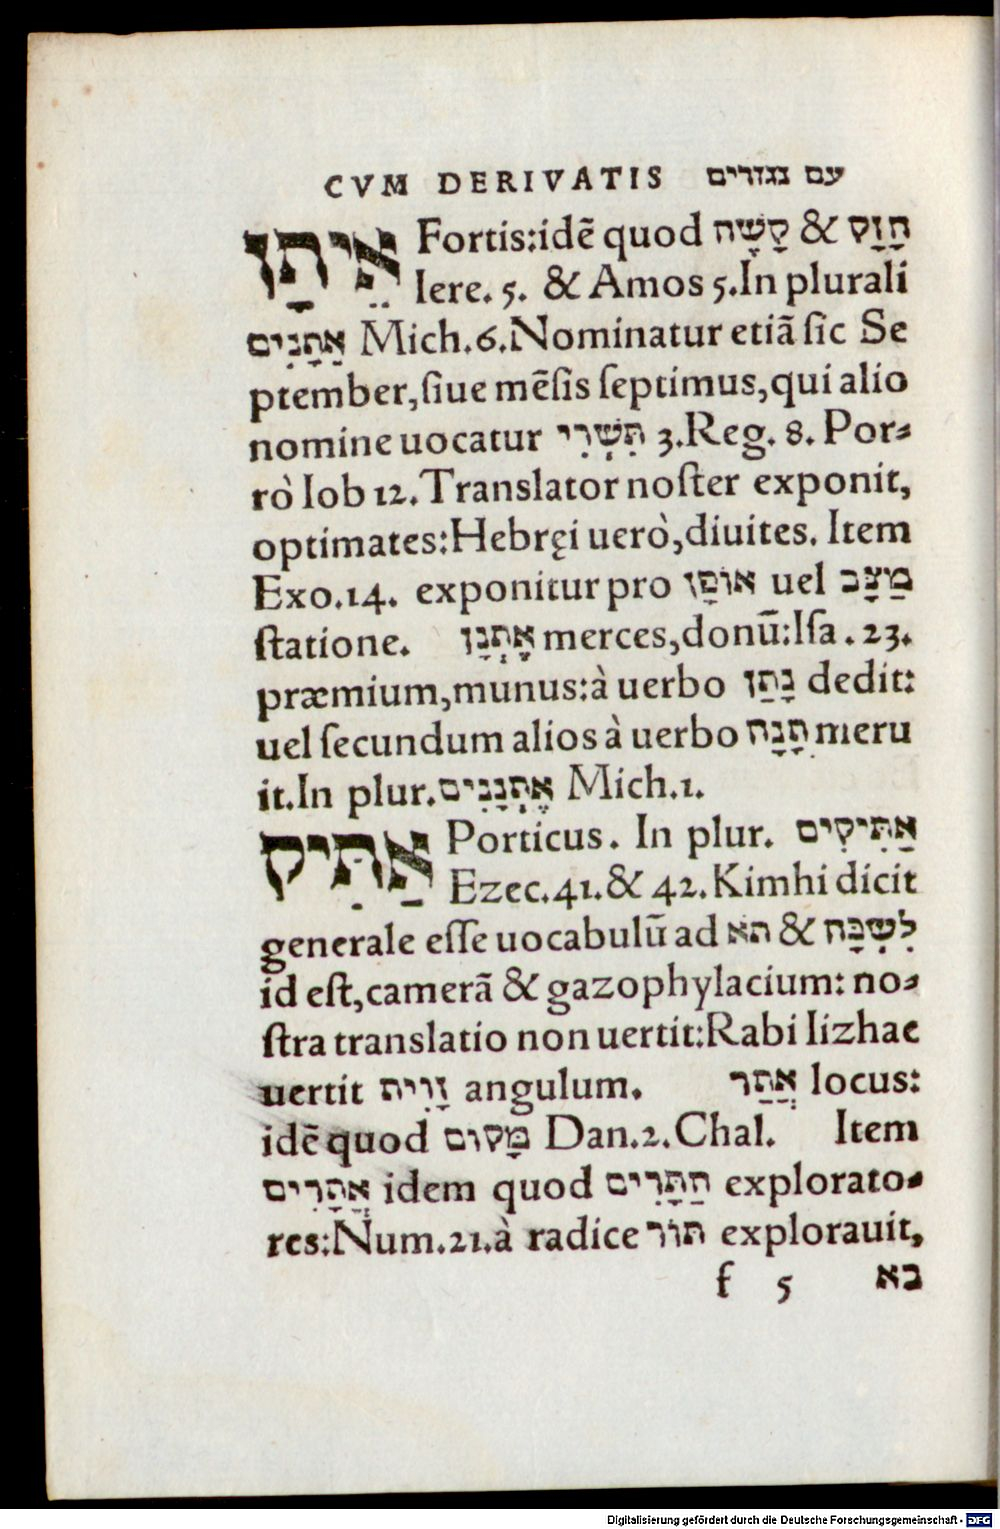 CVM DERIVATIS עם נגזרים
אֵיתָן Fortis:idē quod קָשֶׁה & חָזָק
Iere. 5. & Amos 5.In plurali
אֵתָנִים Mich.6.Nominatur etiā ſic Se
ptember,ſiue mēſis ſeptimus,qui alio
nomine uocatur תִּשְׁרִי 3.Reg. 8. Por-
rò Iob 12.Translator noſter exponit,
optimates:Hebręi uerò,diuites. Item
Exo.14. exponitur pro אוֹפָן uel מַצָּב
ſtatione. אֶתְנָן merces,donū:Iſa.23.
præmium,munus:à uerbo נָתַן dedit:
uel ſecundum alios à uerbo תָּנָה meru
it.In plur.אֶתְנָנִים Mich.1.
אַתִּיק Porticus. In plur. אַתִּיקִים
Ezec.41.& 42.Kimhi dicit
generale eſſe uocabulū ad תא & לִשְׁכָּה
id eſt,camerā & gazophylacium: no-
ſtra translatio non uertit:Rabi Iizhac
uertit זָוִית angulum. אֲתַר locus:
idē quod מָקוֹם Dan.2.Chal. Item
אֲתָרִים idem quod הַתָּרִים explorato-
res:Num.21.à radice תּוּר explorauit,
f 5 בא
Digitalisierung gefördert durch die Deutsche Forschungsgemeinschaft - DFG